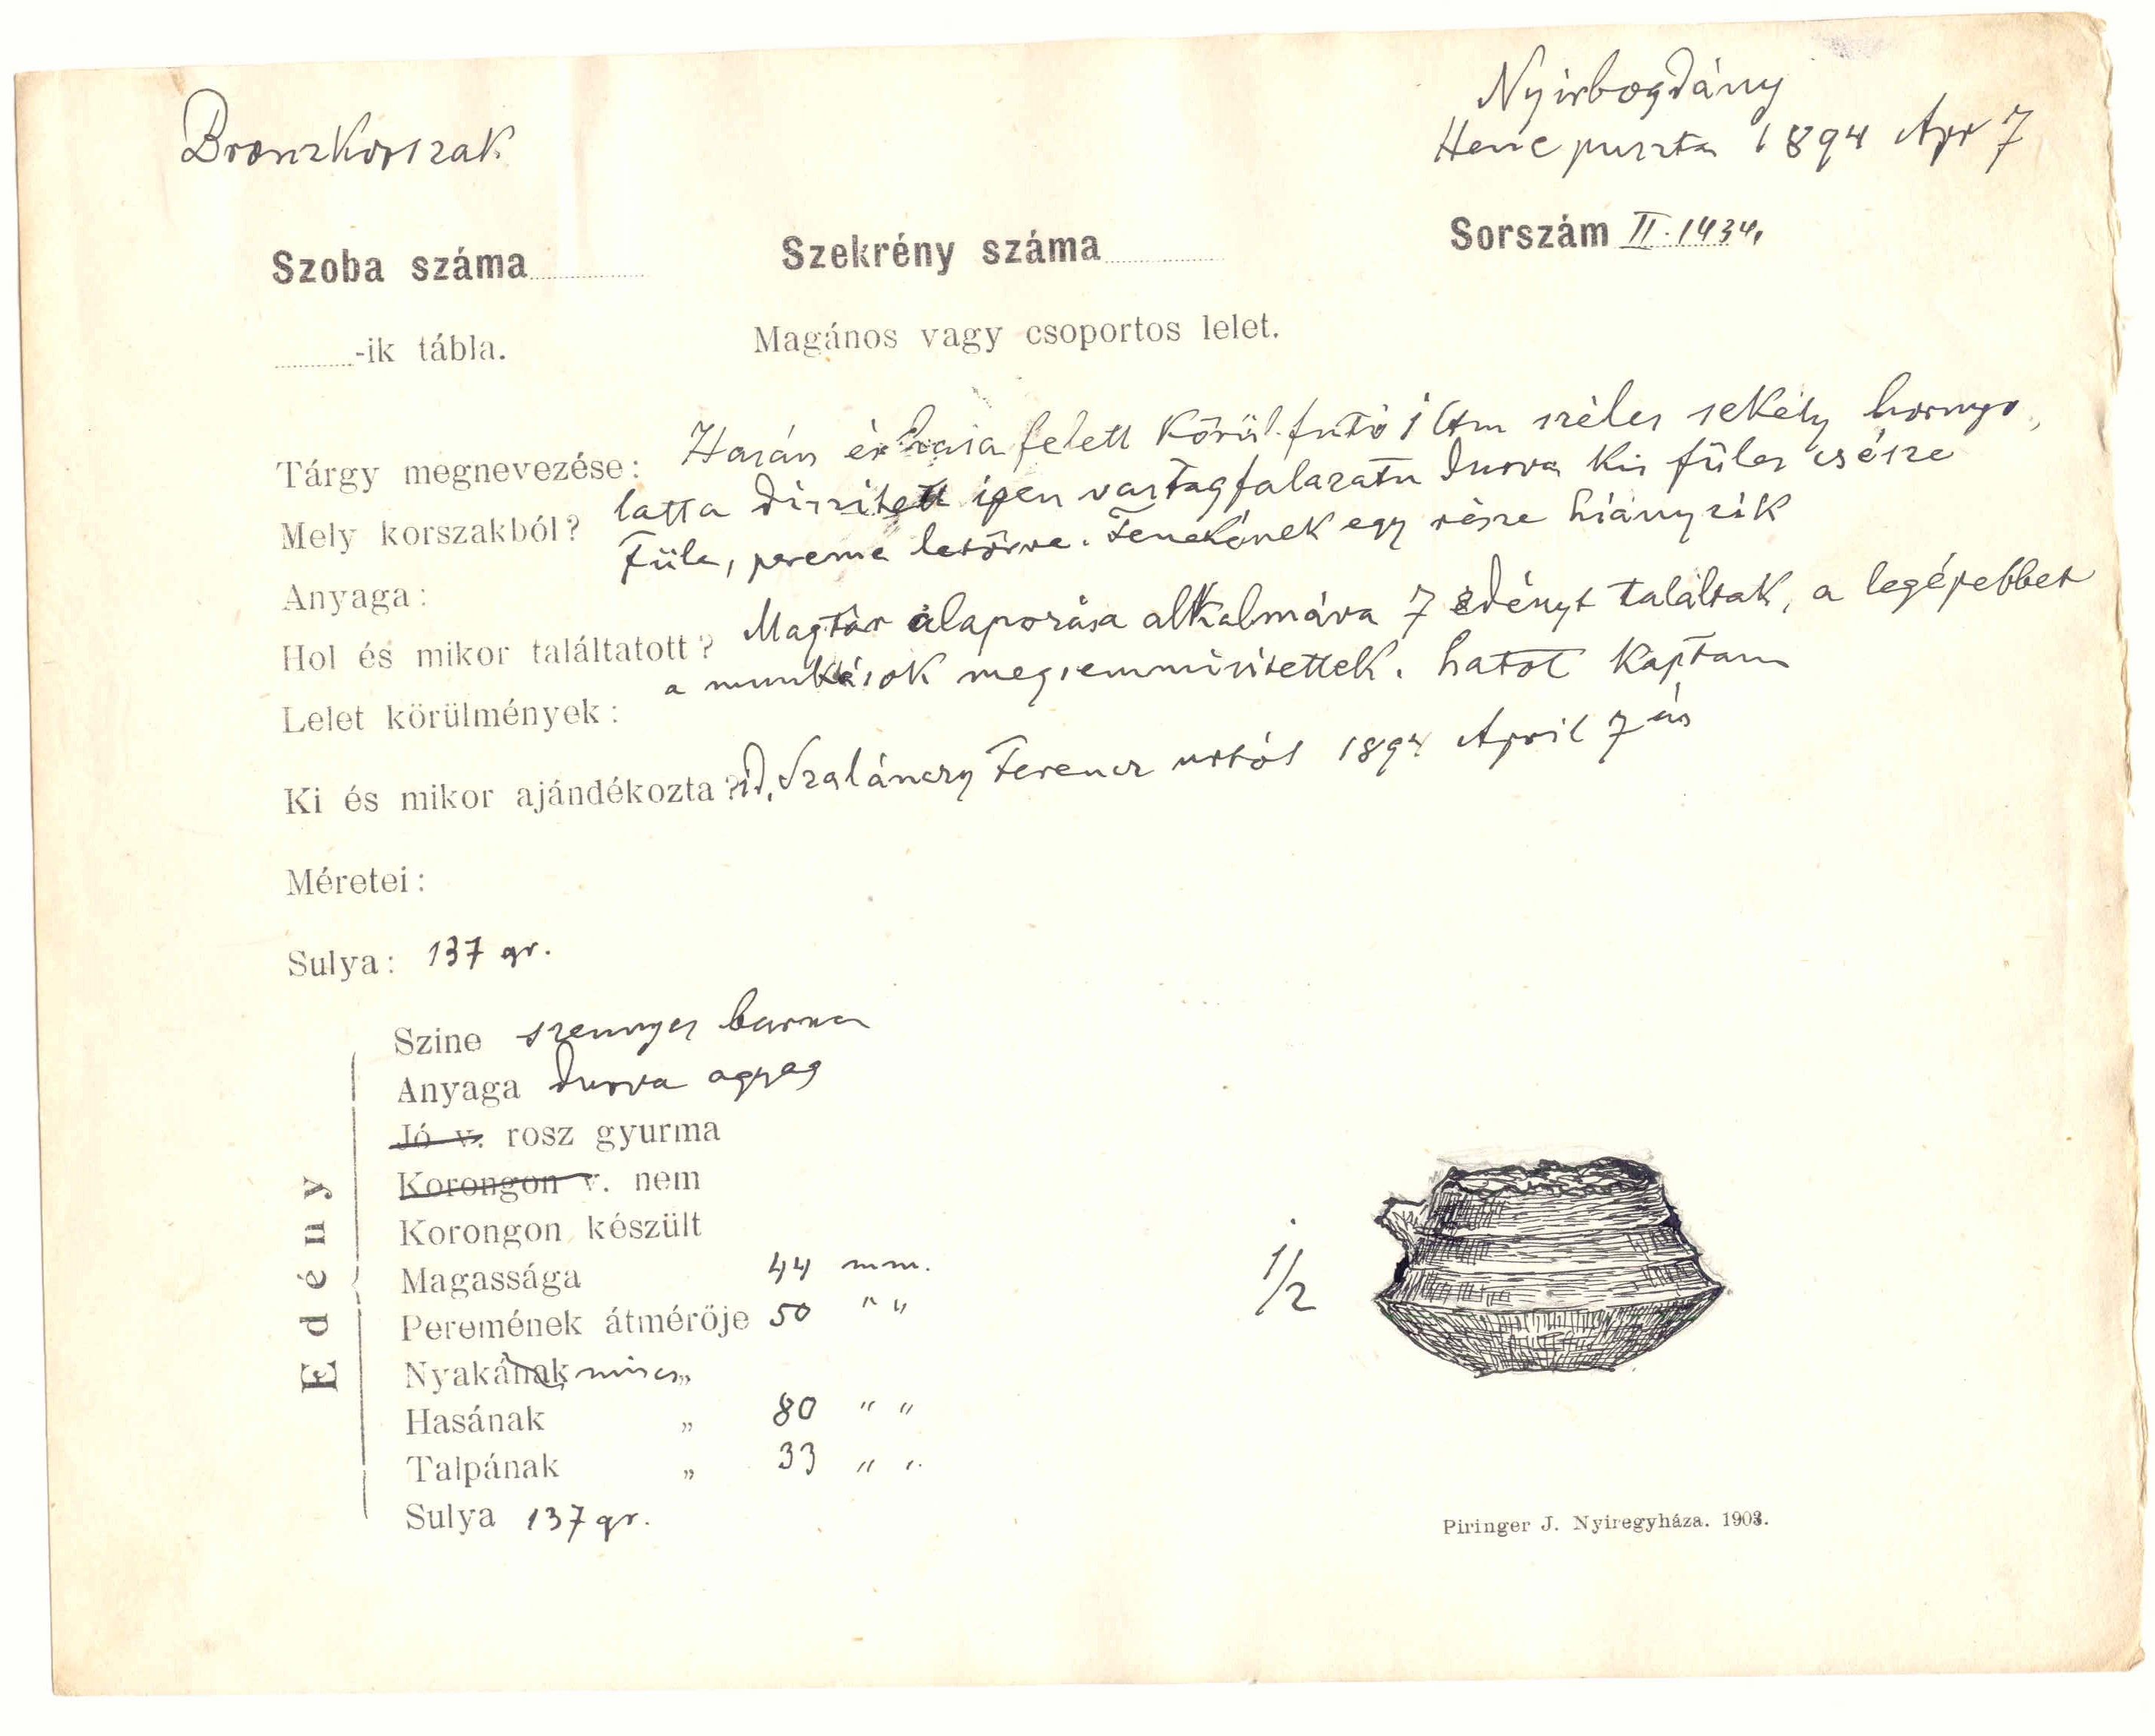 Nyirbogdány
Bronzkorszak
Henc puszta 1894 Apr 7
Szoba száma
Szekrény száma
Sorszám II. 1434.
-ik tábla.
Magános vagy csoportos lelet.
Tárgy megnevezése: Hasán és hasa felett körül futó 1 ctm széles sekély hornyo,
latta diszitett igen vastagfalazatu durva kis füles csésze
Mely korszakból?
Füle, pereme letörve. Fenekének egy része hiányzik
Anyaga:
Hol és mikor találtatott? Magtár alapozása alkalmáva 7 edényt találtak, a legépebbet
a munkások megsemmisitettek. hatot kaptam
Lelet körülmények:
Ki és mikor ajándékozta? id. Szalánczy Ferencz urtól 1894 April 7 én
Méretei:
Sulya: 137 gr.
Edény
Szine szennyes barna
Anyaga durva agyag
Jó v. rosz gyurma
Korongon v. nem
Korongon készült
Magassága 44 mm.
Peremének átmérője 50 " "
Nyakának nincs „
Hasának „ 80 " "
Talpának „ 33 " "
Sulya 137 gr.
1/2
Piringer J. Nyiregyháza. 1903.